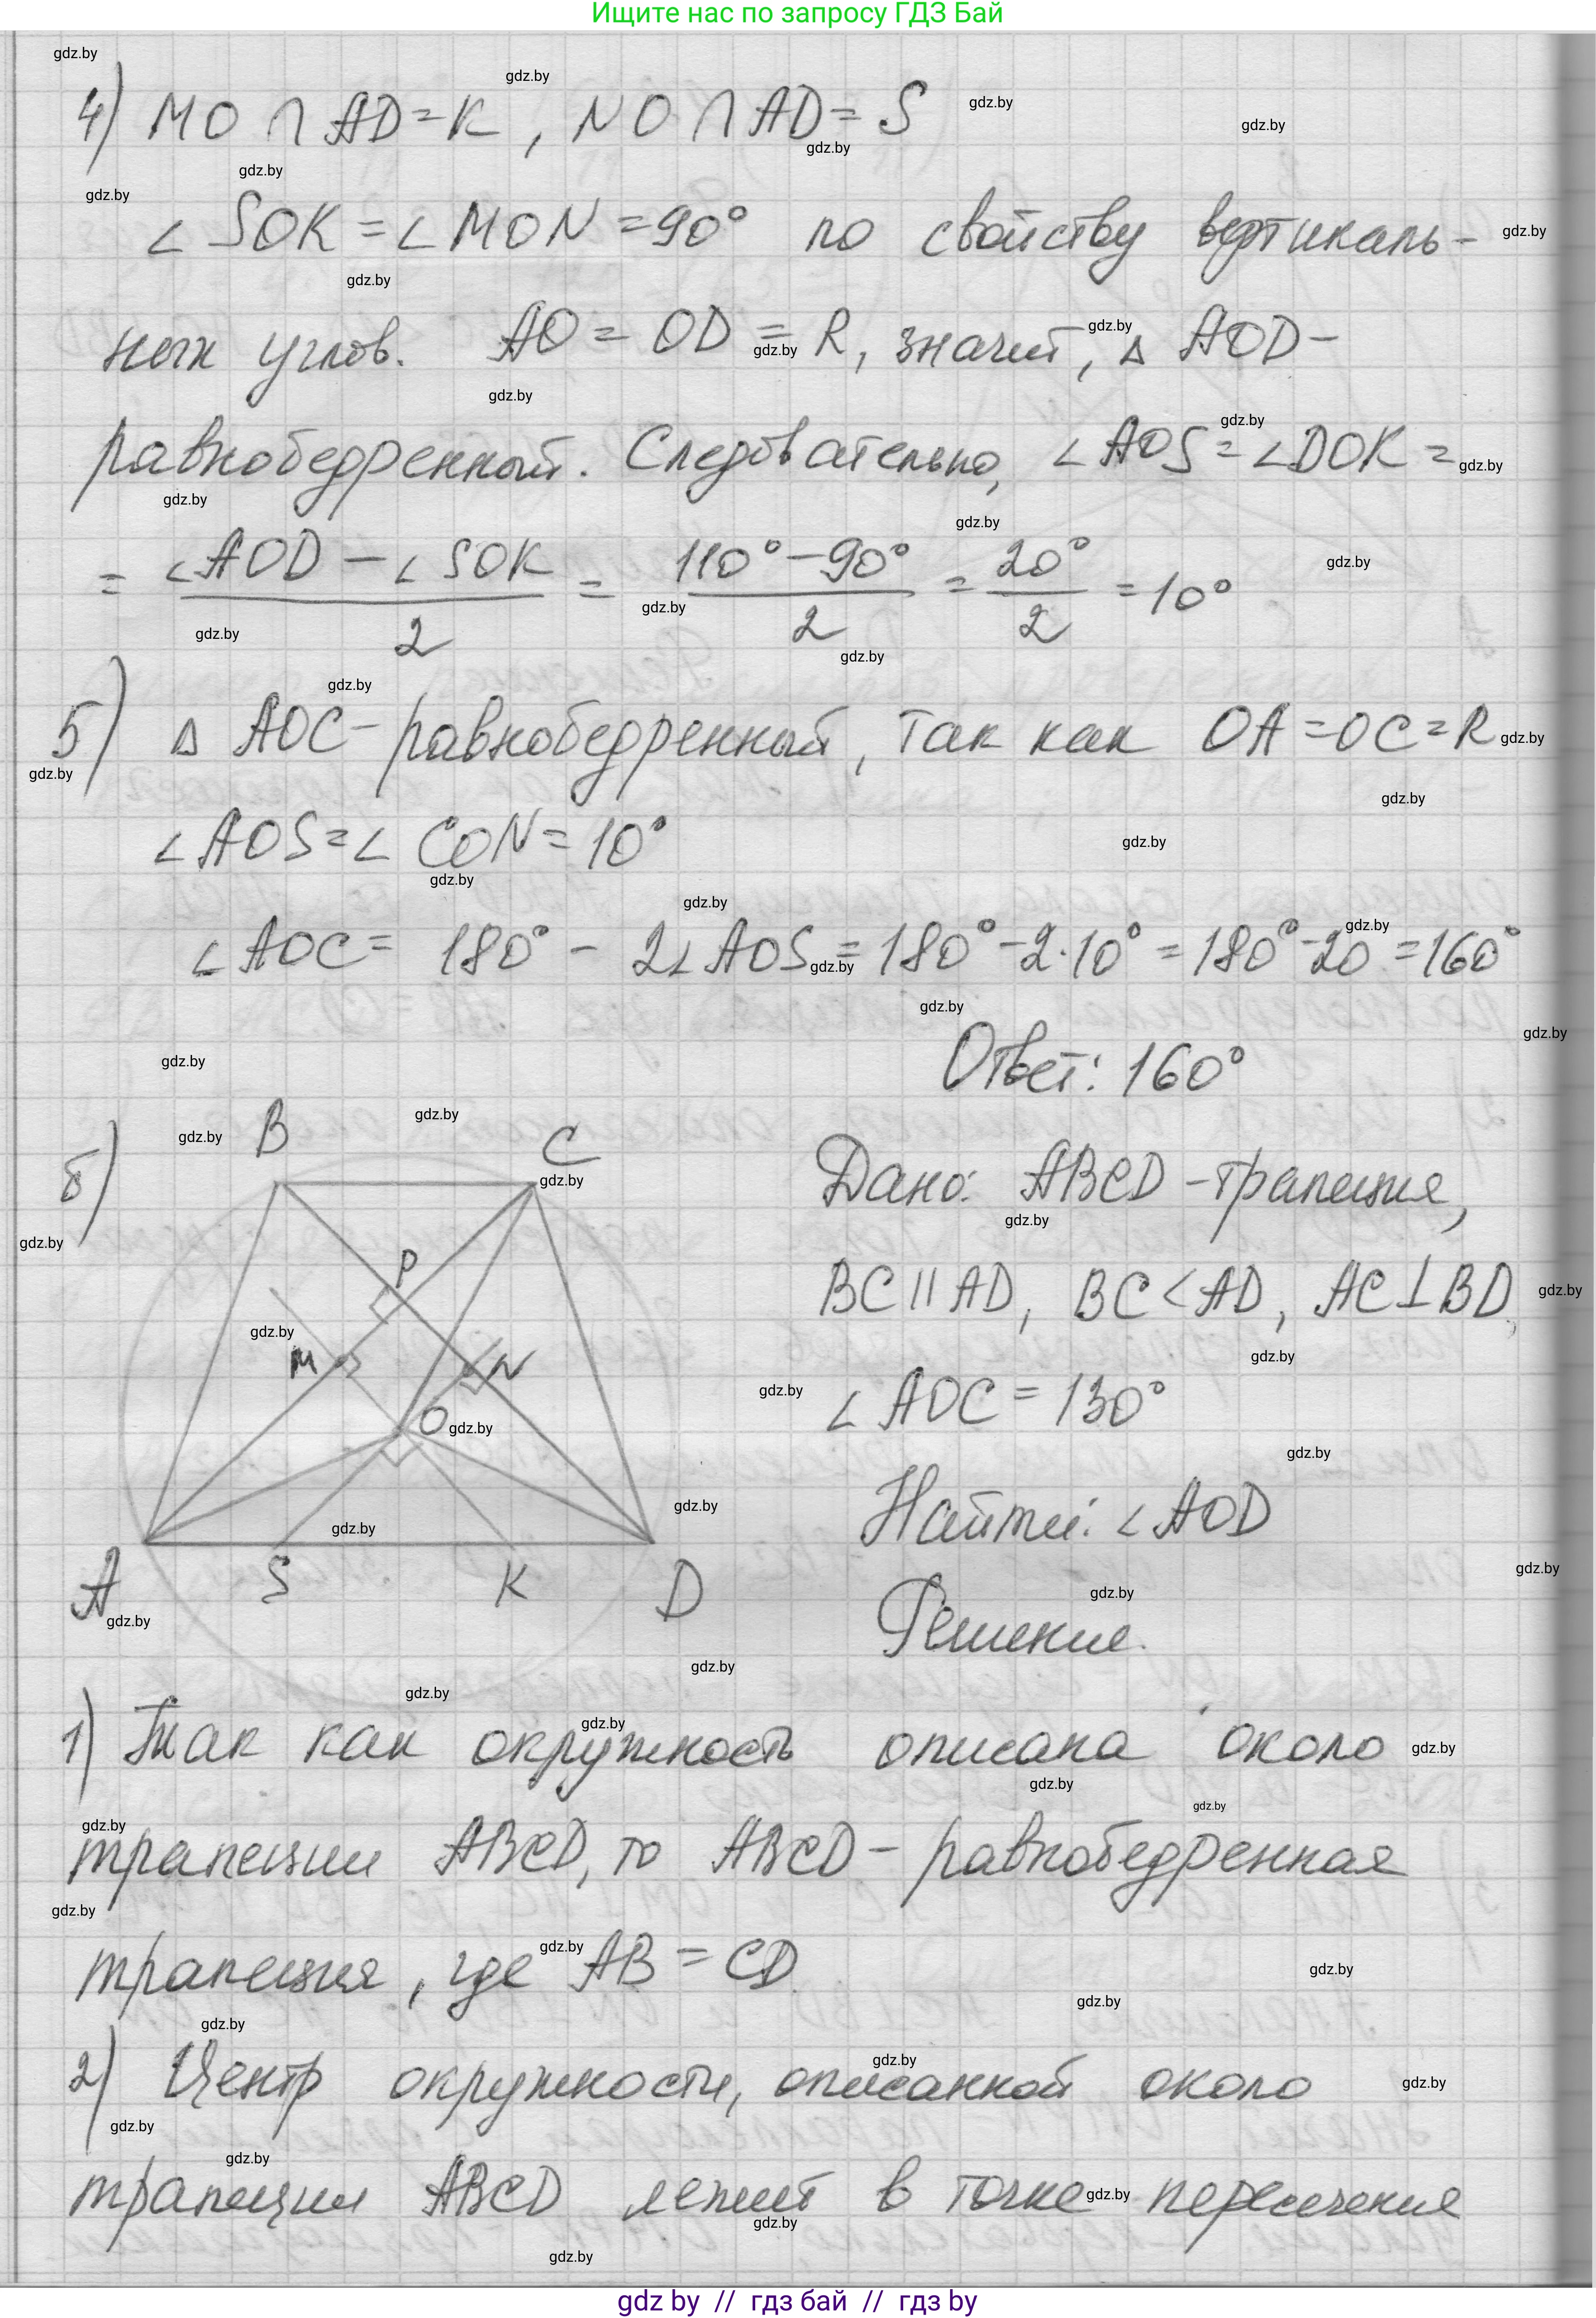 Ищите нас по запросу ГДЗ Бай
4) MO ∩ AD = K, NO ∩ AD = S
∠ SOK = ∠ MON = 90° по свойству вертикаль-
ных углов. AO = OD = R, значит, △ AOD -
равнобедренный. Следовательно, ∠AOS = ∠DOK =
= (∠AOD - ∠SOK)/2 = (110° - 90°)/2 = 20°/2 = 10°
5) △ AOC - равнобедренный, так как OA = OC = R
∠AOS = ∠ CON = 10°
∠AOC = 180° - 2∠AOS = 180° - 2·10° = 180° - 20 = 160°
Ответ: 160°
б)
B
C
P
M
N
O
A
S
K
D
Дано: ABCD - трапеция,
BC || AD, BC < AD, AC ⊥ BD,
∠ AOC = 130°
Найти: ∠ AOD
Решение.
1) Так как окружность описана около
трапеции ABCD, то ABCD - равнобедренная
трапеция, где AB = CD
2) Центр окружности, описанной около
трапеции ABCD лежит в точке пересечения
gdz by // гдз бай // гдз by
gdz.by